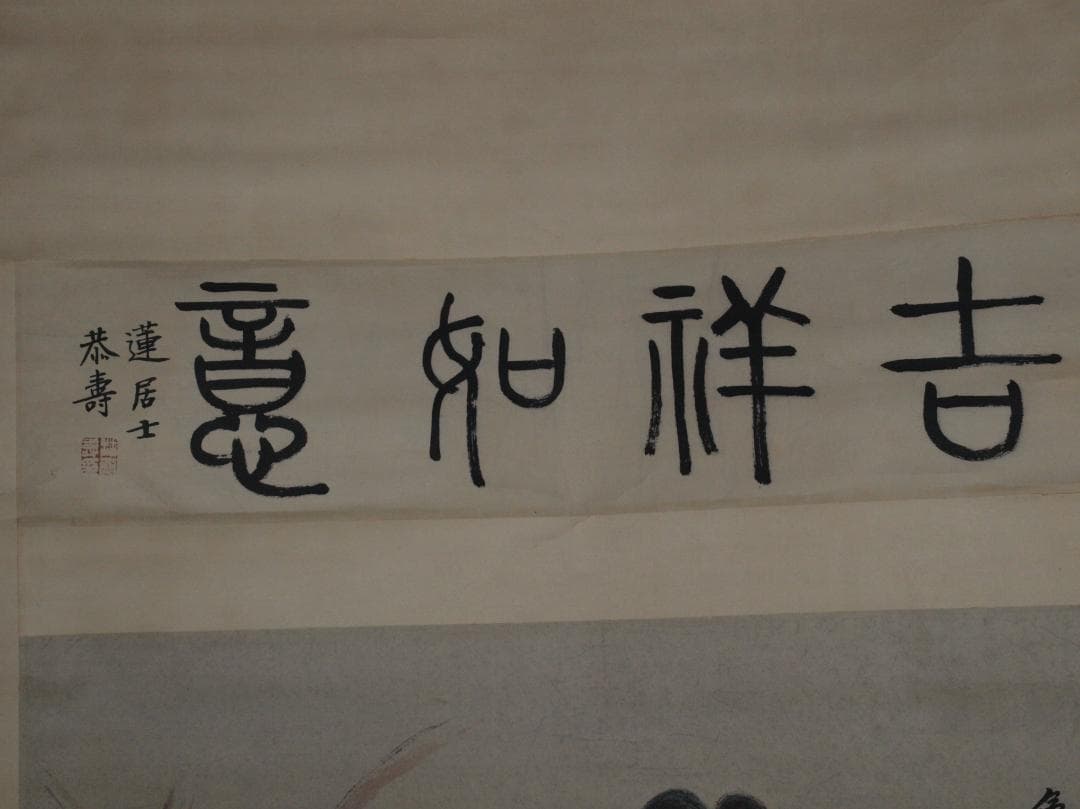 吉祥如意
蓮居士
恭壽